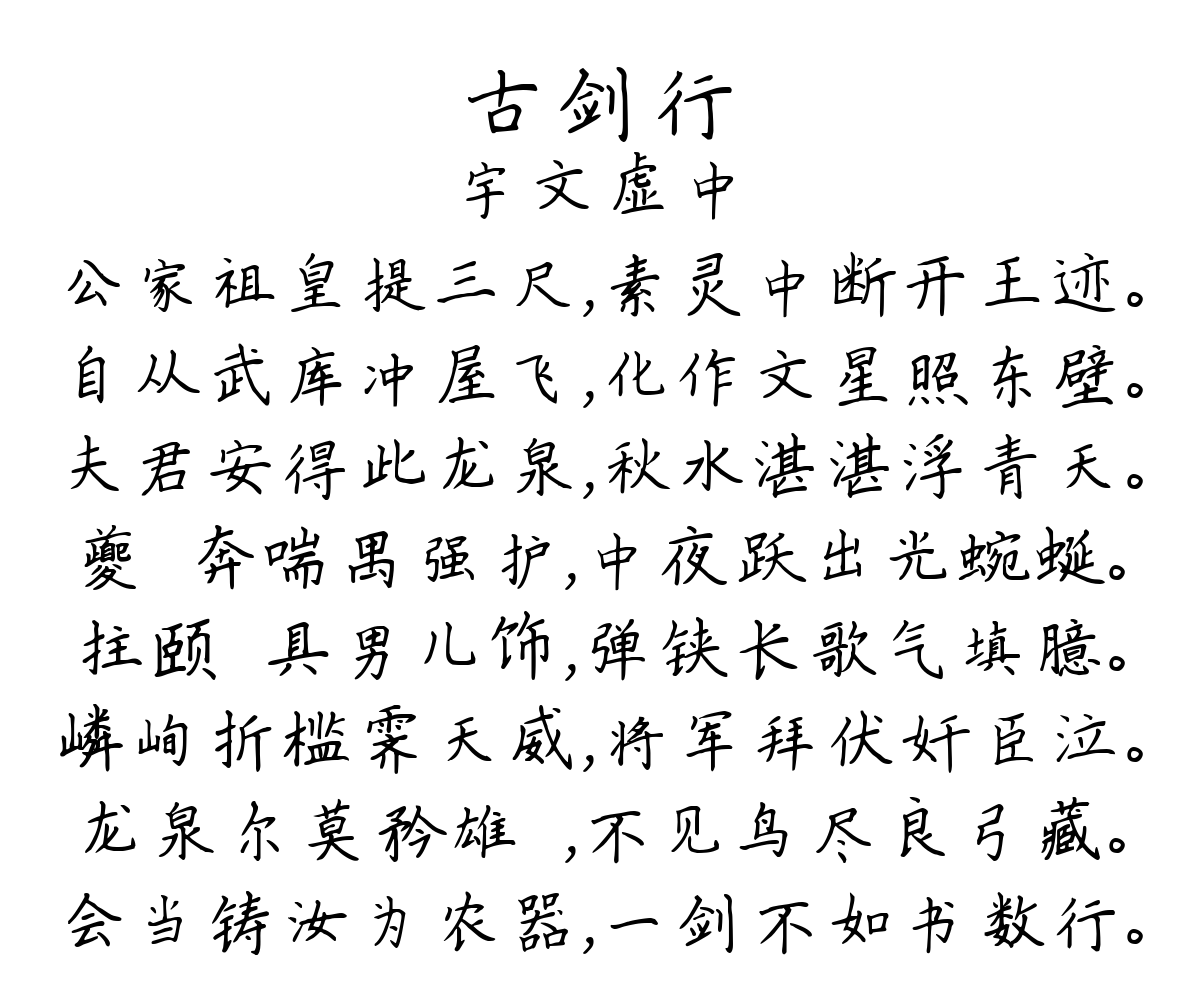 古剑行
宇文虚中
公家祖皇提三尺,素灵中断开王迹。
自从武库冲屋飞,化作文星照东壁。
夫君安得此龙泉,秋水湛湛浮青天。
夔 奔喘禺强护,中夜跃出光蜿蜒。
拄颐 具男儿饰,弹铗长歌气填臆。
嶙峋折槛霁天威,将军拜伏奸臣泣。
龙泉尔莫矜雄 ,不见鸟尽良弓藏。
会当铸汝为农器,一剑不如书数行。